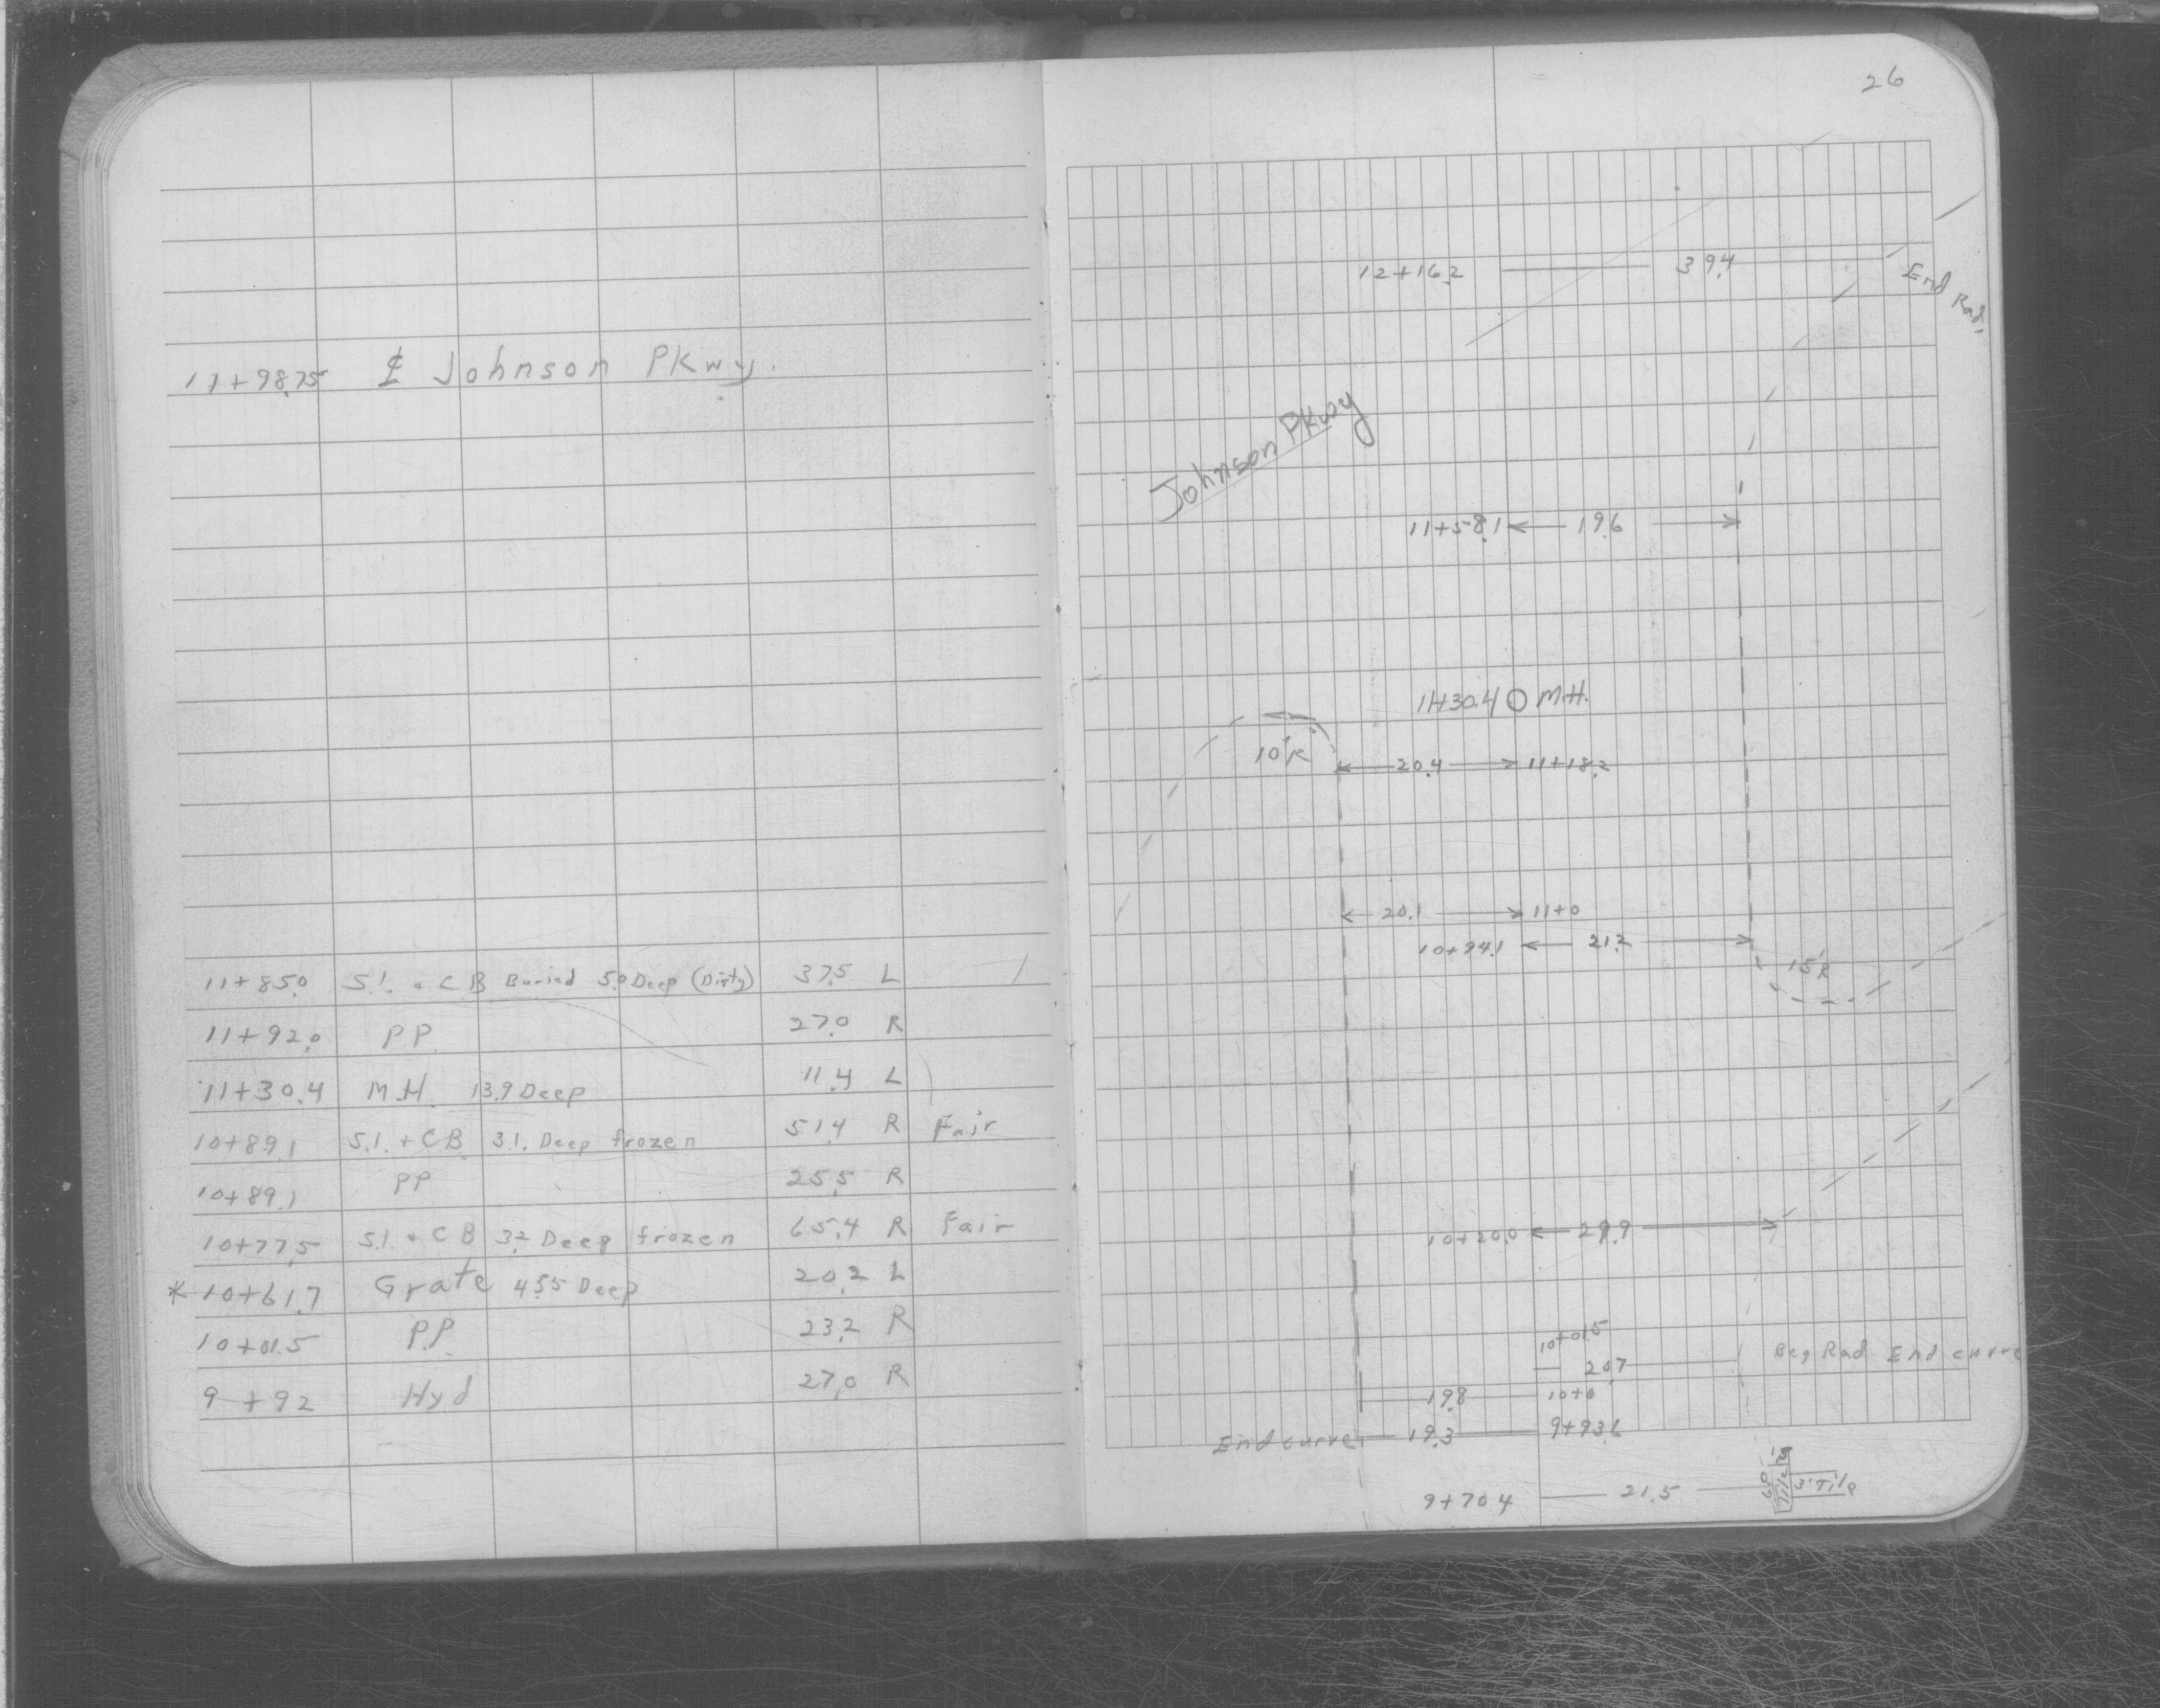 26
11+98.75 ⅊ Johnson Pkwy.
11+85.0 S.I. + CB Buried 5.0 Deep (Dirty) 37.5 L
11+92.0 PP. 27.0 R
11+30.4 M.H. 13.9 Deep 11.4 L
10+89.1 S.I. + CB 3.1. Deep frozen 51.4 R Fair
10+89.1 PP 25.5 R
10+77.5 S.I. + CB 3.2 Deep frozen 65.4 R Fair
* 10+61.7 Grate 4.55 Deep 20.2 L
10+01.5 P.P. 23.2 R
9+92 Hyd 27.0 R
12+16.2 39.4 End Rad.
Johnson Pkwy
11+58.1 19.6
11+30.4 O M.H.
10'R
20.4 11+18.2
20.1 11+0
10+94.1 21.2
15'R
10+20.0 29.9
10+01.5
20.7 Beg Rad End curve
19.8 10+0
End curve 19.3 9+93.6
9+70.4 21.5 3' Tile